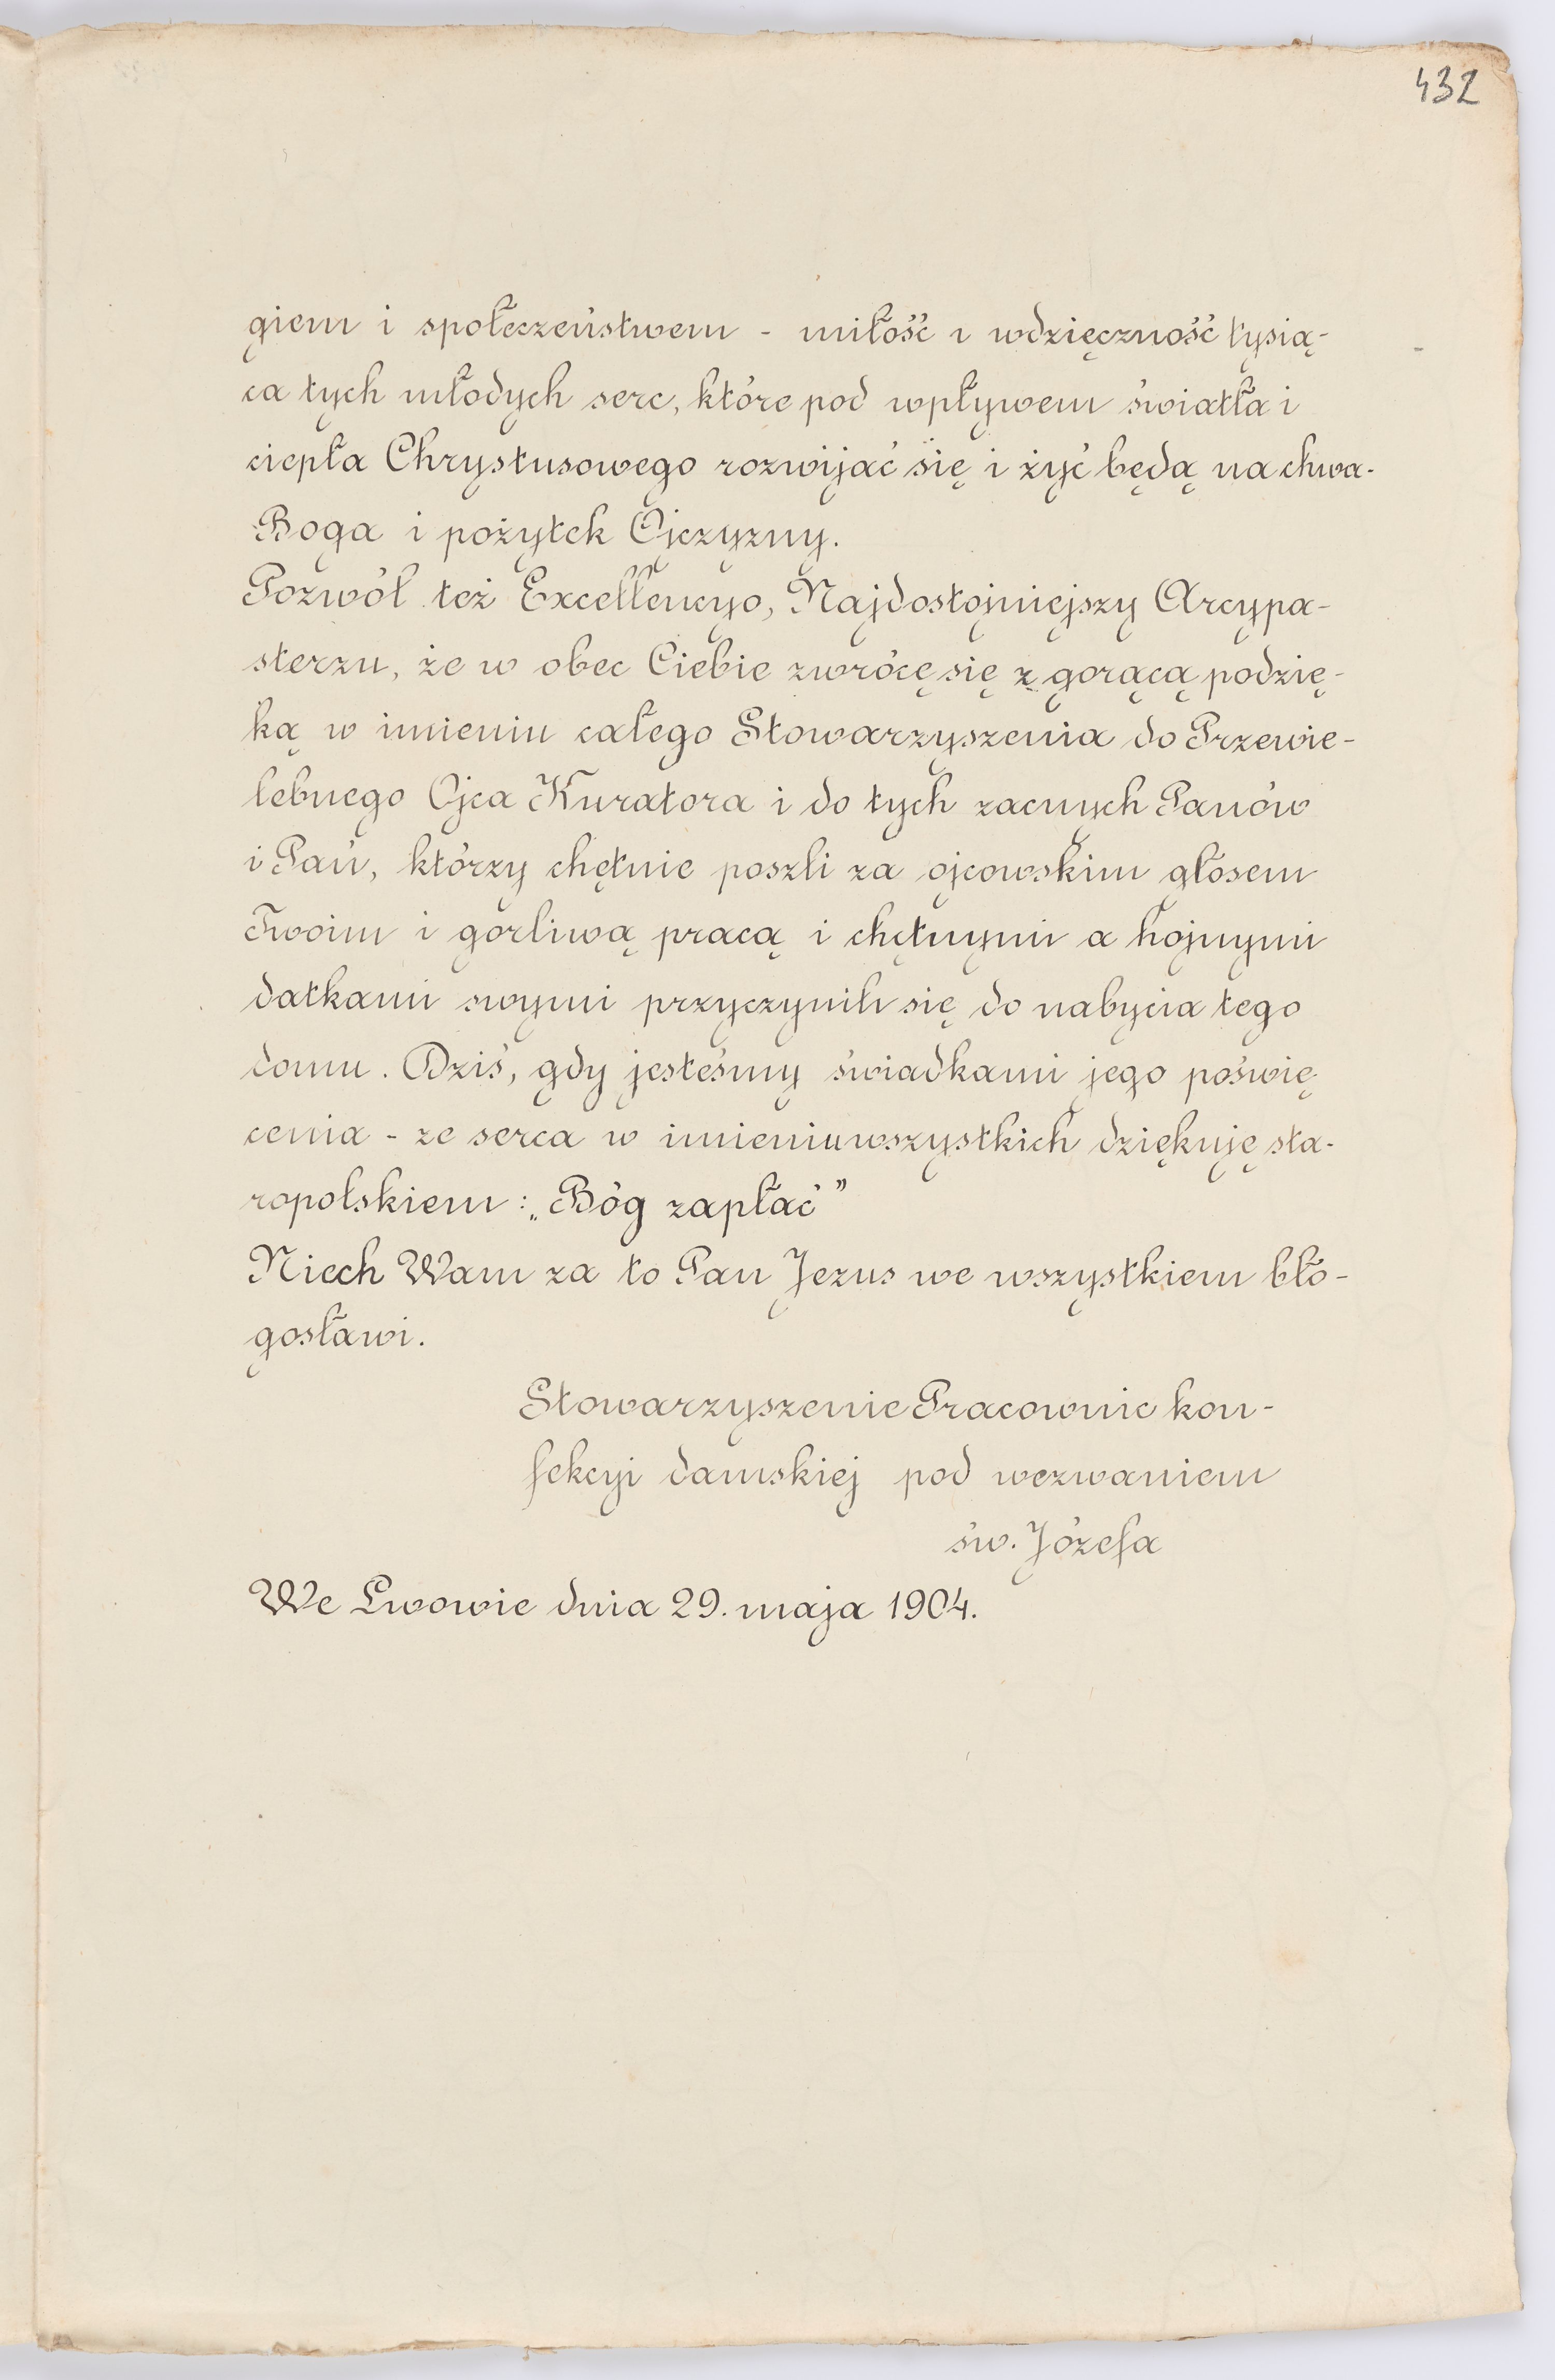 432
giem i społeczeństwem - miłość i wdzięczność tysią-
ca tych młodych serc, które pod wpływem światła i
ciepła Chrystusowego rozwijać się i żyć będą na chwa-
Boga i pożytek Ojczyzny.
Pozwól też Excellencyo, Najdostojniejszy Arcypa-
sterzu, że w obec Ciebie zwrócę się z gorącą podzię-
ką w imieniu całego Stowarzyszenia do Przewie-
lebnego Ojca Kuratora i do tych zacnych Panów
i Pań, którzy chętnie poszli za ojcowskim głosem
Twoim i gorliwą pracą i chętnymi a hojnymi
datkami swymi przyczynili się do nabycia tego
domu. Dziś, gdy jesteśmy świadkami jego poświę
cenia - ze serca w imieniu wszystkich dziękuję sta-
ropolskiem: „Bóg zapłać”
Niech Wam za to Pan Jezus we wszystkiem bło-
gosławi.
Stowarzyszenie Pracownic kon-
fekcyi damskiej pod wezwaniem
św. Józefa
We Lwowie dnia 29. maja 1904.